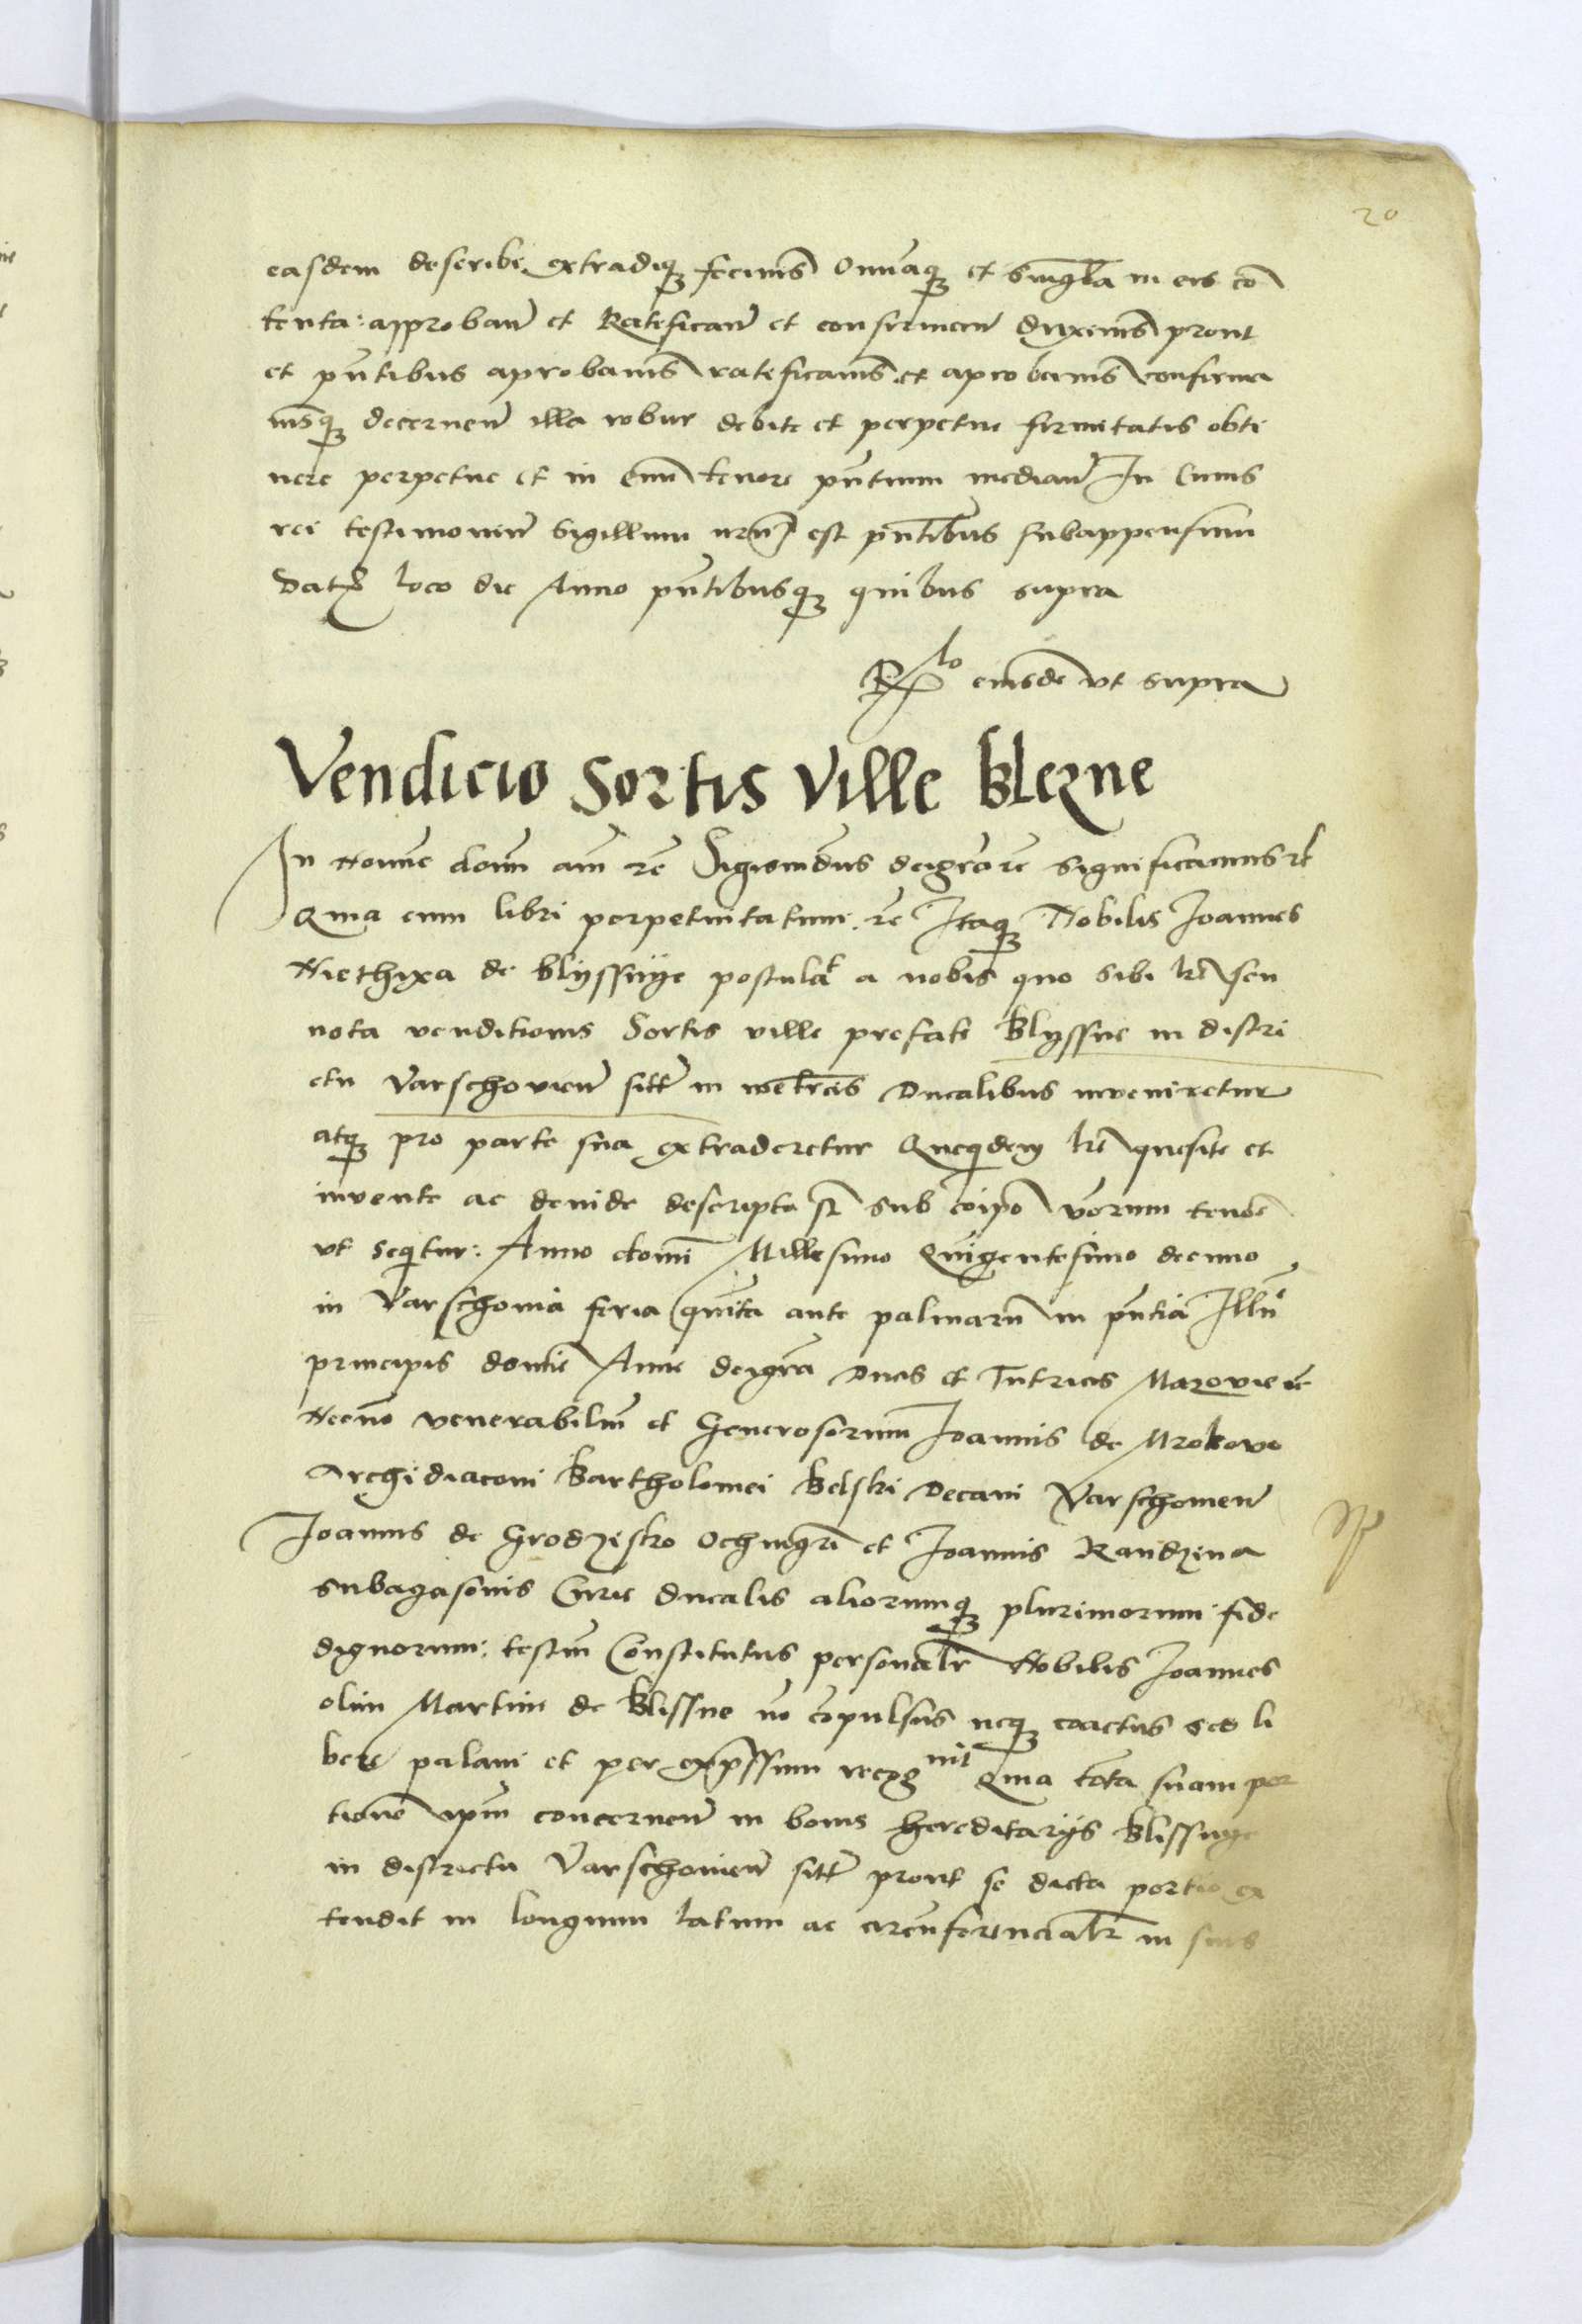 20
easdem describi extradiq3 fecimus Omniaq3 et singla in eis co
tenta: approban et Ratifican et confirman duximus prout
et pntibus aprobamus ratificamus et aprobamus confirma
musq3 decernen illa robur debite et perpetue firmitatis obti
nere perpetue et in evum tenore pntium median In Cuius
rei testimonium Sigillum nrm est pntibus subappensum
Dat loco die Anno pntibusq3 quibus supra
Rlo eiusde vt supra
Vendicio Sortis Ville Blezne
In Nomine domini am rc Sigismdus dei gra rc significamus rc
Quia cum libri perpetuitatum rc Itaq3 Nobilis Joannes
Niethyxa de Blyssnye postulat a nobis quo sibi lre seu
nota venditionis Sortis ville prefate Blyssne in distri
ctu Varschovien sitt in metricis Ducalibus inveniretur
atq3 pro parte sua extraderetur Queqdem lre quesite et
invente ac deinde descripte st sub coipo verum tenore
vt seqitur: Anno domini Millesimo Quigentesimo decimo
in Varschovia feria quita ante palmarum in pntia Illu
principis domine Anne dei gra Ducis et Tutricis Mazovie rc
Necno venerabilium et Generosorum Joannis de Mrokovo
Archidiaconi Bartholomei Belski Decani Varschovien
Joannis de Grodzisko Ochmgri et Joannis Randzina
subagasonis Curie ducalis aliorumq3 plurimorum fide
dignorum: testium Constitutus personalr Nobilis Joannes
olim Martini de Blissne no copulsus neq3 coactus sed li
bere palam et per expssum recognit Quia tota suam por
tione ipm concernen in bonis hereditarijs Blissnye
in districtu Varschovien sitt prout se dicta portio ex
tendit in longum latum ac circuferencialr in suis